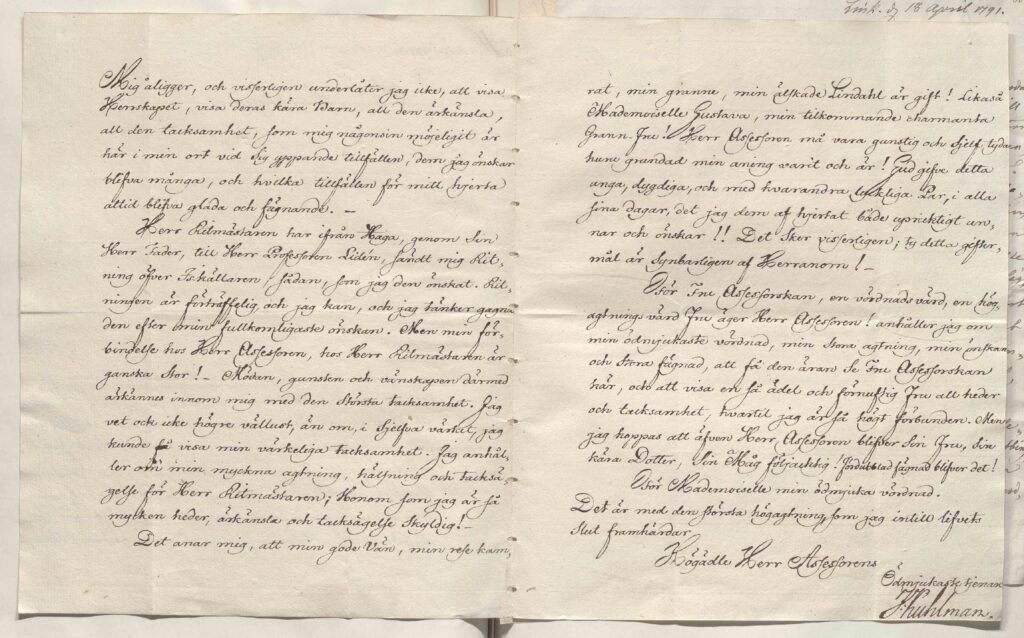 Link. d. 18 April 1791.
Mig åligger, och visserligen underlåter jag icke, att visa
Herrskapet, visa deras kära Barn, all den ärkänsla,
all den tacksamhet, som mig någonsin möjeligit är
här i min ort vid sig yppande tilfällen, dem jag önskar
blifva många, och hvilka tillfällen för mitt hjerta
altid blifva glada och fägnande. –
Herr Ritmästaren har ifrån Haga, genom Sin
Herr Fader, till Herr Professoren Lidén, sändt mig Rit-
ning öfver Iskällaren sådan, som jag den önskat. Rit-
ningen är förträffelig och jag kan, och jag tänker gagna
den efter min fullkomligaste önskan. Men min för-
bindelse hos Herr Assessoren, hos Herr Ritmästaren är
ganska stor! – Mödan, gunsten och vänskapen därmed
ärkännes innom mig med den största tacksamhet. Jag
vet ock icke högre vällust, än om, i sjelfva värket, jag
kunde få visa min värkeliga tacksamhet. Jag anhål-
ler om min myckna agtning, hälsning och tacksä-
gelse för Herr Ritmästaren; Honom som jag är så
mycken heder, ärkänsla och tacksägelse skyldig! –
Det anar mig, att min gode Vän, min rese kam,
rat, min granne, min älskade Lindahl är gift! Likaså
Mademoiselle Gustava, min tilkommande charmanta
Grann-Fru! Herr Assessoren må vara gunstig och sjelf tyda
huru grundad min aning warit och är! Gud gifve detta
unga, dygdiga, och med hvarandra lyckliga Par, i alla
sina dagar, det jag dem af hjertat både upricktigt un-
nar och önskar!! Det sker visserligen; ty detta gifter-
mål är synbarligen af Herranom! –
För Fru Assessorskan, en vördnads värd, en hög-
agtnings värd Fru äger Herr Assessoren! anhåller jag om
min ödmjukaste vördnad, min stora agtning, min önskan
och stora fägnad, att få den äran Se Fru Assessorskan
här, och att visa en så ädel och förnuftig Fru all heder
och tacksamhet, hvartil jag är så högt förbunden. Men
jag hoppas att äfven Herr Assessoren blifver Sin Fru, Sin
kära Dotter, Sin Måg följacktig! fägnad blifver det!
För Mademoiselle min ödmjuka vördnad.
Det är med den största högagtning, som jag intill lifvets
slut framhärdar
Högädle Herr Assessorens
Ödmjukaste tjenare
Kuhlman.